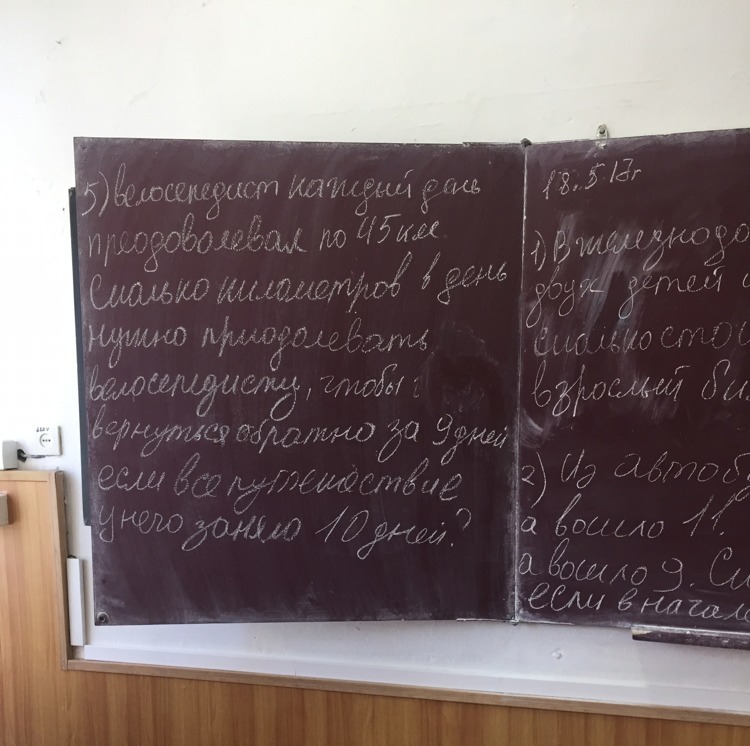 5) велосепедист каждый день
преодоволевал по 45 км
Сколько километров в день
нужно приодолевать
велосепедисту, чтобы
вернуться обратно за 9 дней
если все путешествие
у него заняло 10 дней?
18.5.17г
1) В железнодо
двух детей
сколько стои
взрослый
2) Из автоб
а вошло 11.
а вошло 9. Ск
если в начале